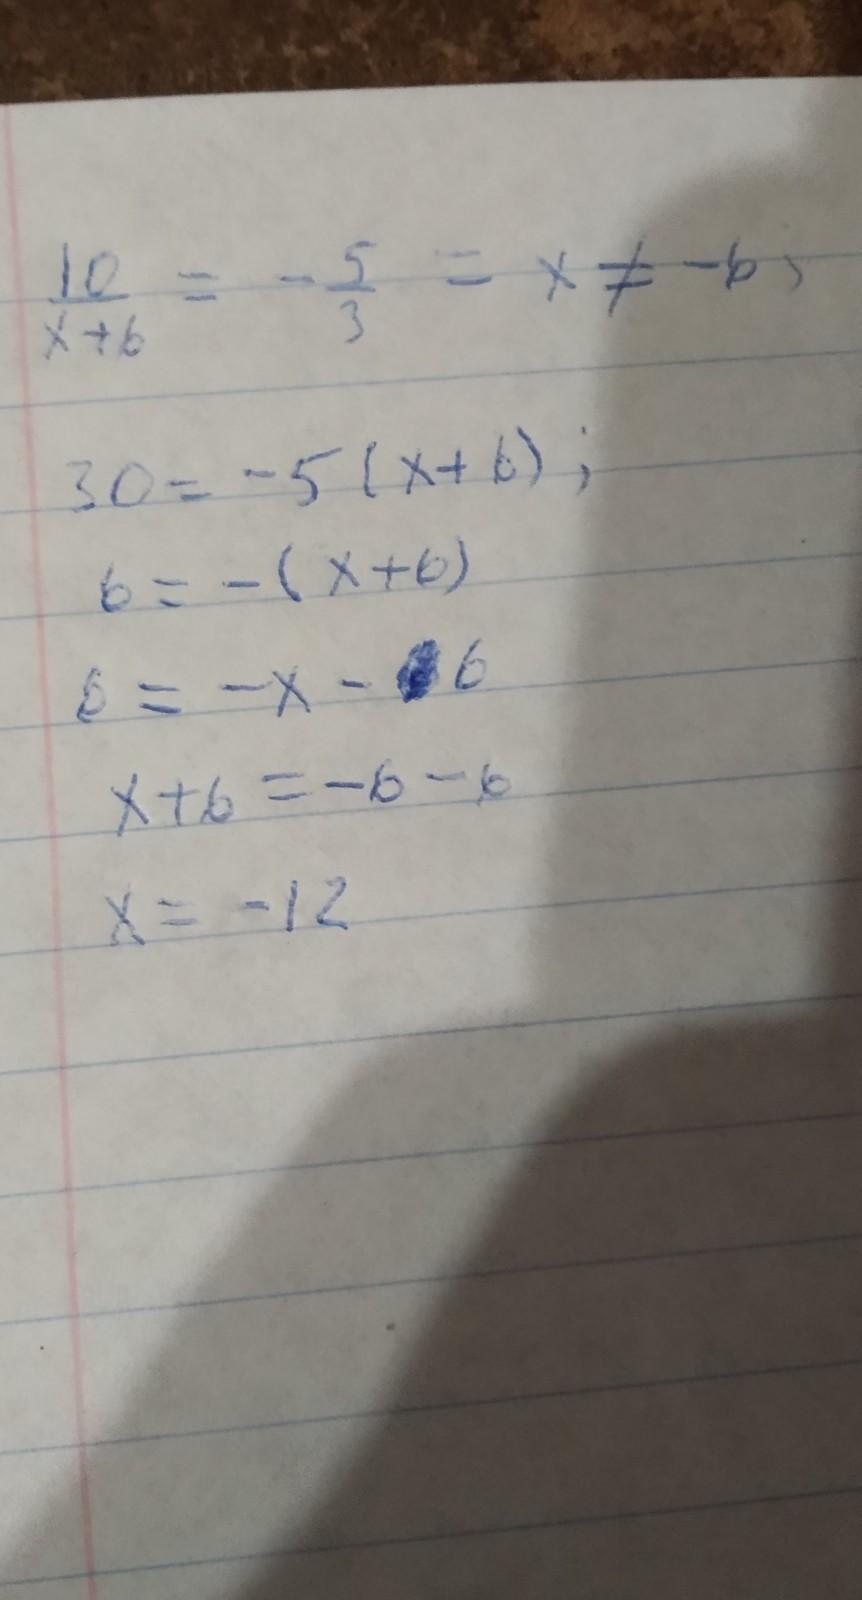 10/x+6 = -5/3 = x ≠ -6;
30 = -5(x+6);
6 = -(x+6)
6 = -x - 6
x+6 = -6 - 6
x = -12